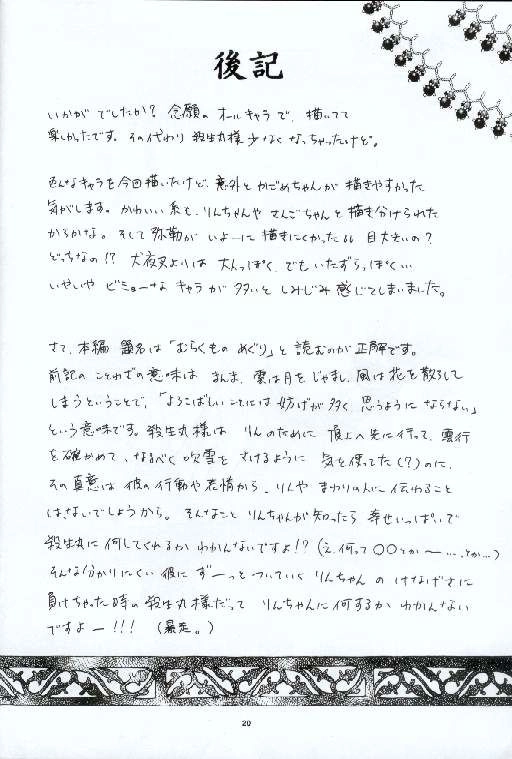 後記
いかがでしたか？ 念願のオールキャラで、描いてて
楽しかったです。その代わり 殺生丸様少なくなっちゃったけど。
色んなキャラを今回描いたけど、意外とかごめちゃんが描きやすかった
気がします。かわいい系も、りんちゃんやさんごちゃんと描き分けられた
かなあ。そして弥勒がいよーに描きにくかった。目大きいの？
どっちなの!? 犬夜叉よりは大人っぽく、でもいたずらっぽく…
いやいや ビミョーな キャラが多いと しみじみ感じてしまいました。
さて、本編 題名は「むらくもの めぐり」と読むのが正解です。
前記の ことわざの意味は まんま、雲は月をじゃまし、風は花を散らして
しまうということで、「よろこばしいことには 妨げが多く 思うようにならない」
という意味です。殺生丸様は りんのために 頂上へ先に行って、雲行
を確かめて、なるべく吹雪を さけるように 気を使ってた(?)のに、
その真意は彼の行動や表情から、りんや まわりの人に伝わること
はないでしょうから。そんなこと りんちゃんが知ったら 幸せいっぱいで
殺生丸に何してくれるか わかんないですよ!? (え、何って〇〇とか〜……とか…)
そんな分かりにくい彼に ずーっとついていく りんちゃんの けなげさに
負けちゃった時の殺生丸様だって りんちゃんに何するか わかんない
ですよー!!! (暴走。)
20